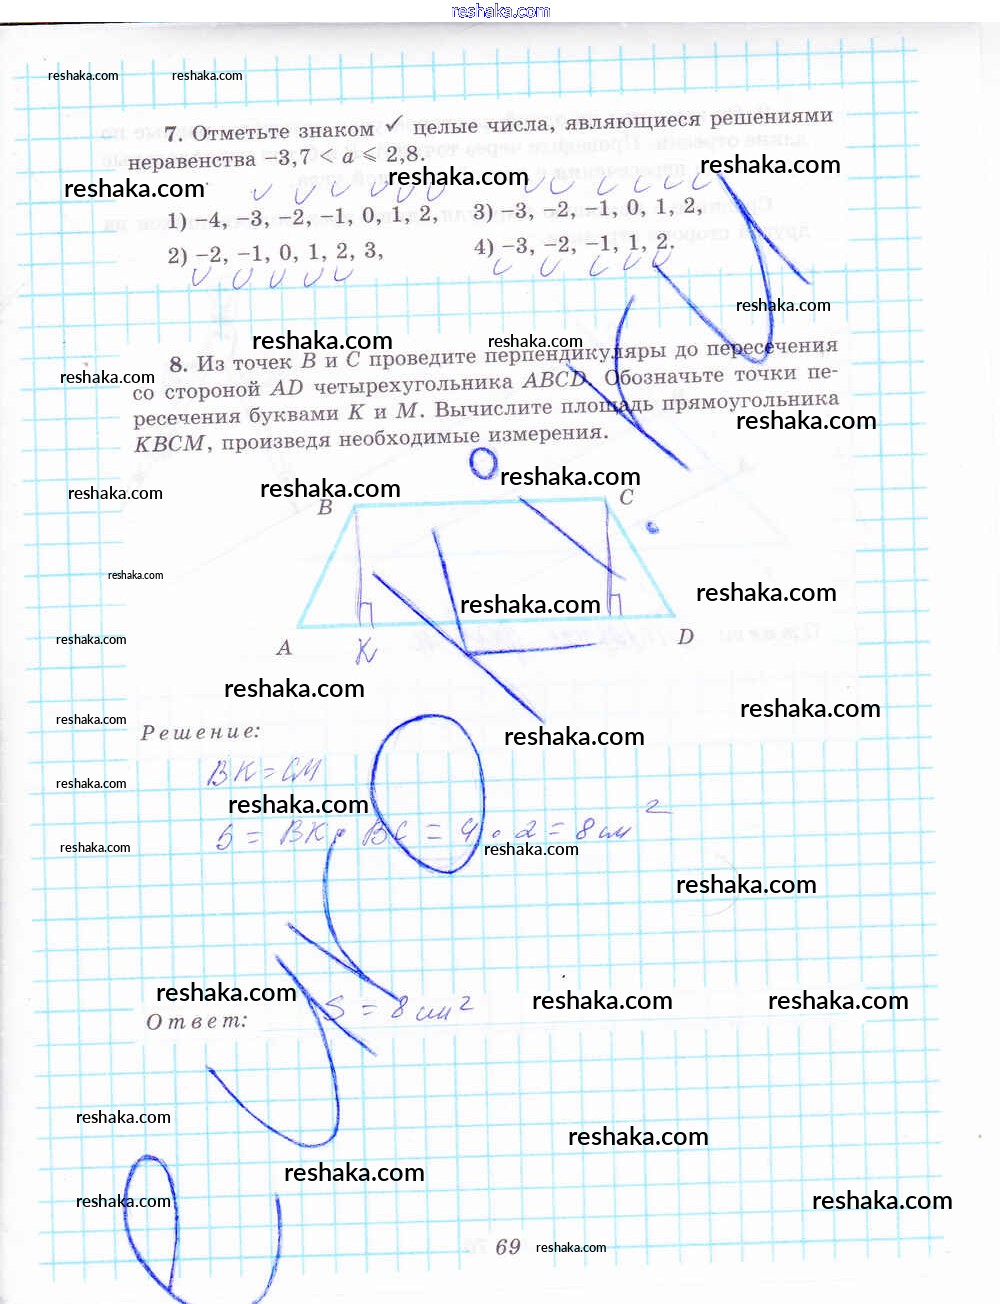 reshaka.com
reshaka.com reshaka.com
7. Отметьте знаком ✓ целые числа, являющиеся решениями
неравенства −3,7 < a ⩽ 2,8.
reshaka.com reshaka.com reshaka.com
1) −4, −3, −2, −1, 0, 1, 2, 3) −3, −2, −1, 0, 1, 2,
2) −2, −1, 0, 1, 2, 3, 4) −3, −2, −1, 1, 2.
reshaka.com
reshaka.com reshaka.com
8. Из точек B и C проведите перпендикуляры до пересечения
со стороной AD четырехугольника ABCD. Обозначьте точки пе-
reshaka.com
ресечения буквами K и M. Вычислите площадь прямоугольника
reshaka.com
KBCM, произведя необходимые измерения.
reshaka.com reshaka.com reshaka.com
B C
reshaka.com
reshaka.com reshaka.com
reshaka.com
A K D
reshaka.com
reshaka.com reshaka.com
Решение:
reshaka.com
BK = CM
reshaka.com
reshaka.com
S = BK · BC = 4 · 2 = 8 см²
reshaka.com reshaka.com
reshaka.com
reshaka.com reshaka.com reshaka.com
Ответ: S = 8 см²
reshaka.com
reshaka.com
reshaka.com
reshaka.com reshaka.com
69 reshaka.com